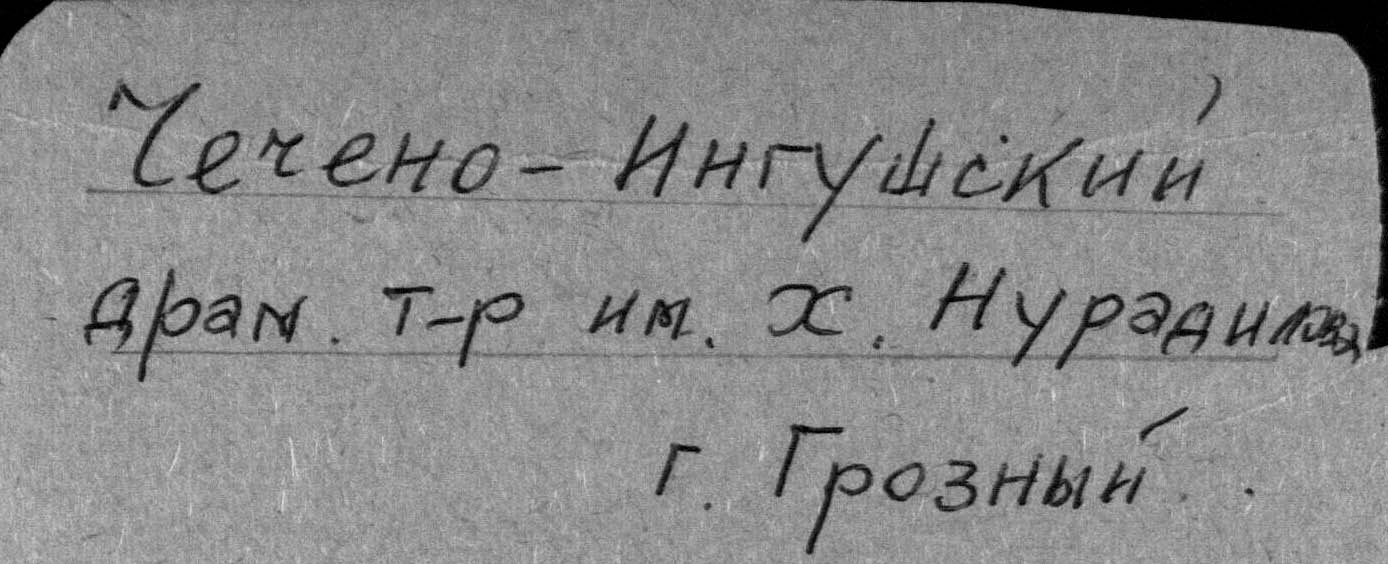 Чечено - Ингушский
драм. т-р им. Х. Нурадилова
г. Грозный.